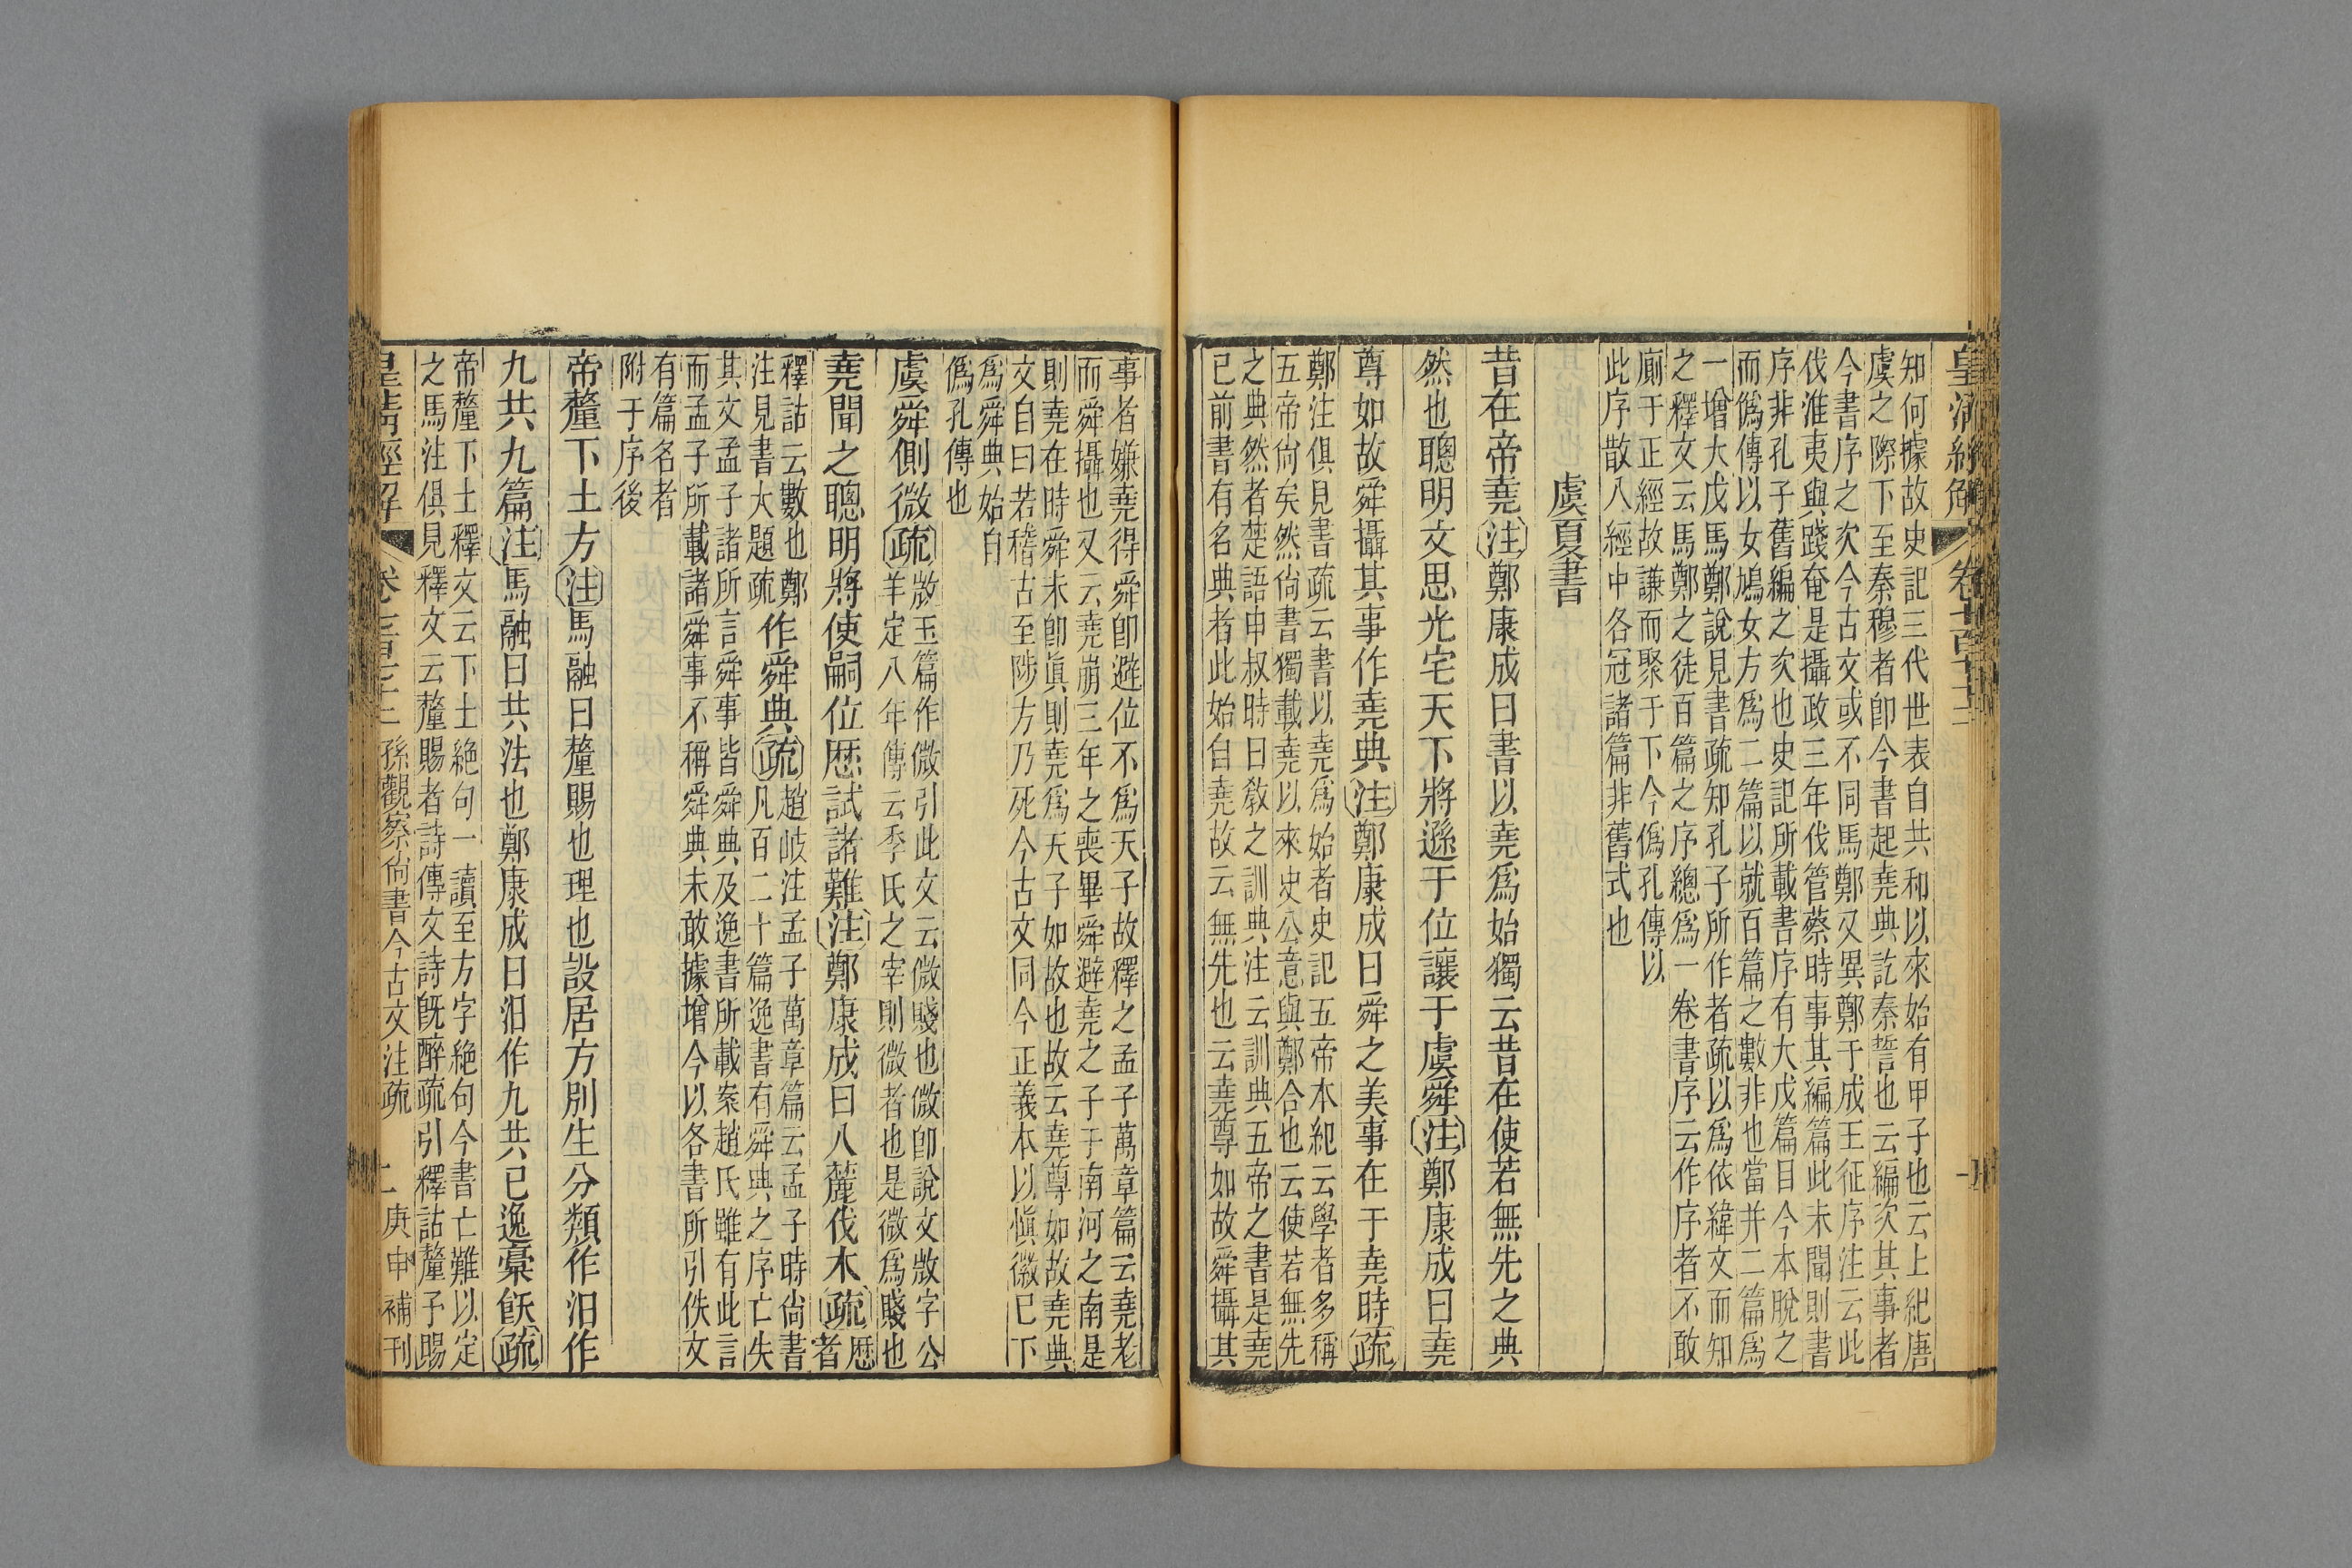 皇淸經解 卷七百七十二
知何據故史記三代世表自共和以來始有甲子也云上紀唐
虞之際下至秦穆者卽今書起堯典訖秦誓也云編次其事者
今書序之次今古文或不同馬鄭又異鄭于成王征序注云此
伐淮夷與踐奄是攝政三年伐管蔡時事其編篇此未聞則書
序非孔子舊編之次也史記所載書序有大戊篇目今本脫之
而僞傳以女鳩女方爲二篇以就百篇之數非也當并二篇爲
一增大戊馬鄭說見書疏知孔子所作者疏以爲依緯文而知
之釋文云馬鄭之徒百篇之序總爲一卷書序云作序者不敢
廁于正經故謙而聚于下今僞孔傳以
此序散入經中各冠諸篇非舊式也
虞夏書
昔在帝堯注鄭康成曰書以堯爲始獨云昔在使若無先之典
然也聰明文思光宅天下將遜于位讓于虞舜注鄭康成曰堯
尊如故舜攝其事作堯典注鄭康成曰舜之美事在于堯時疏
鄭注俱見書疏云書以堯爲始者史記五帝本紀云學者多稱
五帝尙矣然尙書獨載堯以來史公意與鄭合也云使若無先
之典然者楚語申叔時曰敎之訓典注云訓典五帝之書是堯
已前書有名典者此始自堯故云無先也云堯尊如故舜攝其
事者嫌堯得舜卽避位不爲天子故釋之孟子萬章篇云堯老
而舜攝也又云堯崩三年之喪畢舜避堯之子于南河之南是
則堯在時舜未卽眞則堯爲天子如故也故云堯尊如故堯典
文自曰若稽古至陟方乃死今古文同今正義本以愼徽已下
爲舜典始自
僞孔傳也
虞舜側微疏㪫玉篇作微引此文云微賤也微卽說文㪫字公
羊定八年傳云季氏之宰則微者也是微爲賤也
堯聞之聰明將使嗣位歷試諸難注鄭康成曰入麓伐木疏歷
者
釋詁云數也鄭
注見書大題疏
作舜典疏趙岐注孟子萬章篇云孟子時尙書
凡百二十篇逸書有舜典之序亡失
其文孟子諸所言舜事皆舜典及逸書所載案趙氏雖有此言
而孟子所載諸舜事不稱舜典未敢據增今以各書所引佚文
有篇名者
附于序後
帝釐下土方注馬融曰釐賜也理也設居方別生分類作汨作
九共九篇注馬融曰共法也鄭康成曰汨作九共已逸稾飫疏
帝釐下土釋文云下土絶句一讀至方字絶句今書亡難以定
之馬注俱見釋文云釐賜者詩傳文詩旣醉疏引釋詁釐予賜
皇淸經解 卷七百七十二 孫觀察尙書今古文注疏 二 庚申補刊